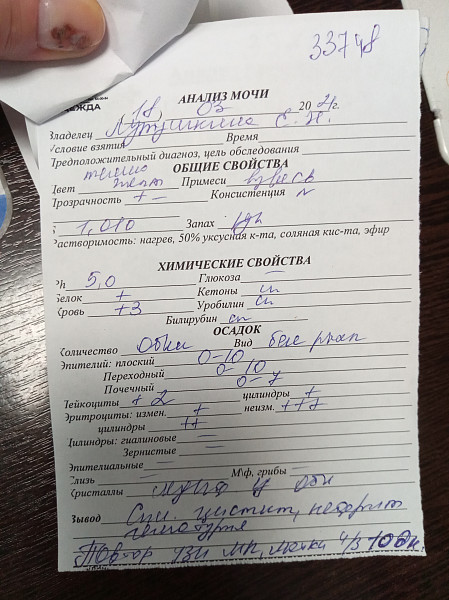 33748
ЕЖДА
АНАЛИЗ МОЧИ
18, 03 2024г.
Владелец Лупушкина С. Н.
Условие взятия Время
Предположительный диагноз, цель обследования
ОБЩИЕ СВОЙСТВА
Цвет темно желт Примеси взвесь
Прозрачность + – Консистенция N
1,010 Запах
Растворимость: нагрев, 50% уксусная к-та, соляная кис-та, эфир
ХИМИЧЕСКИЕ СВОЙСТВА
Ph 5,0 Глюкоза —
Белок + Кетоны сл
Кровь +3 Уробилин сл
Билирубин сл
ОСАДОК
Количество Обил Вид бел рыхл
Эпителий: плоский 0-10
Переходный 0-10
Почечный 0-7
Лейкоциты +2 цилиндры +
Эритроциты: измен. + неизм. +++
цилиндры ++
Цилиндры: гиалиновые —
Зернистые —
Эпителиальные —
Слизь — М\ф, грибы —
Кристаллы
Вывод цистит, нефрит
гематурия
Повтор УЗИ МП, мочки ч/з 10 дн